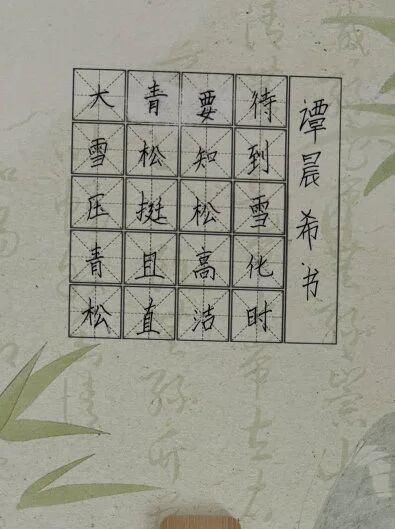 大雪压青松
青松挺且直
要知松高洁
待到雪化时
谭晨希书